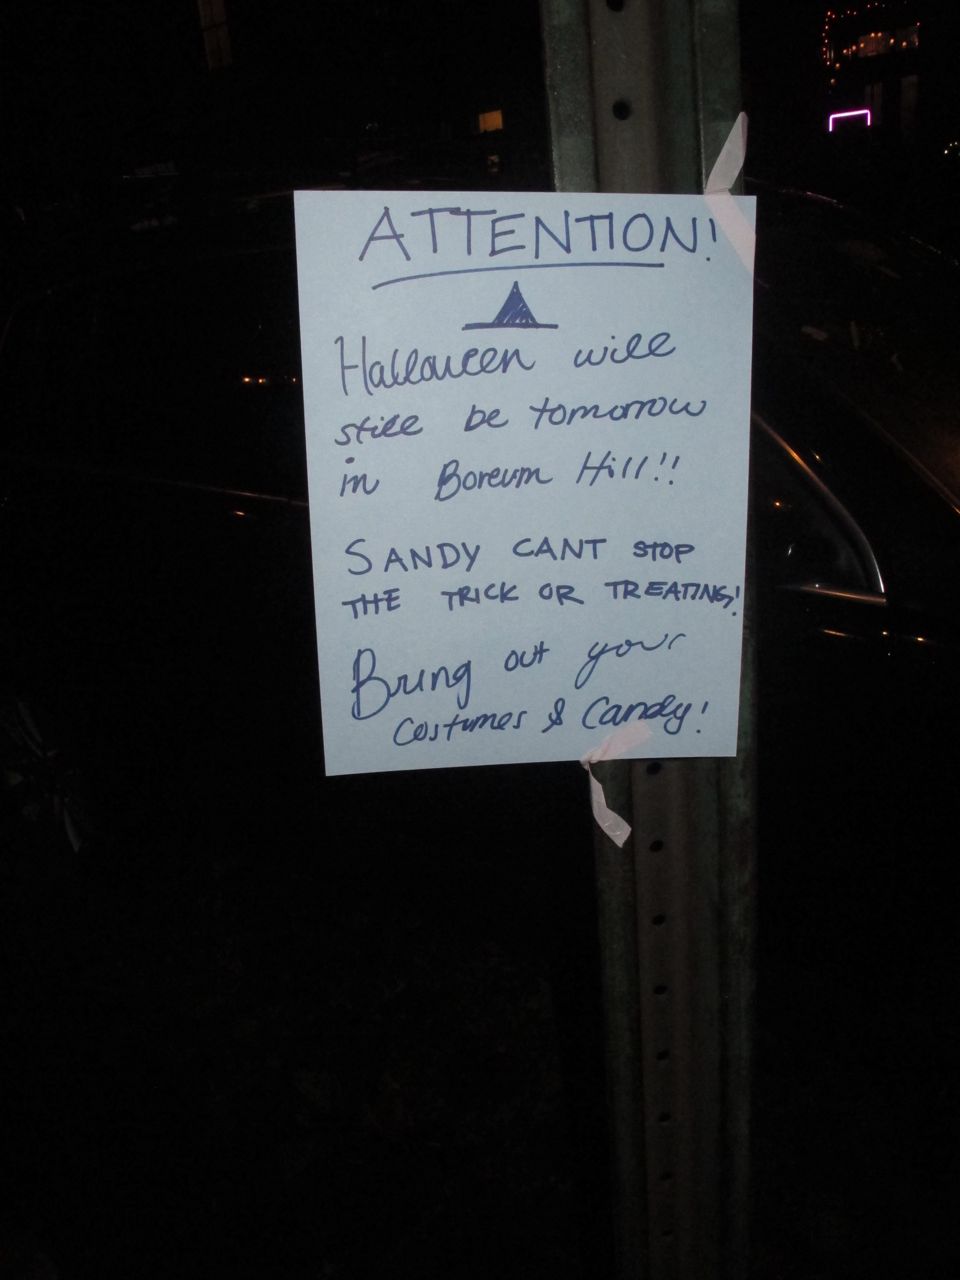 ATTENTION!
Halloween will
still be tomorrow
in Boreum Hill!!
SANDY CANT STOP
THE TRICK OR TREATING!
Bring out your
Costumes & Candy!